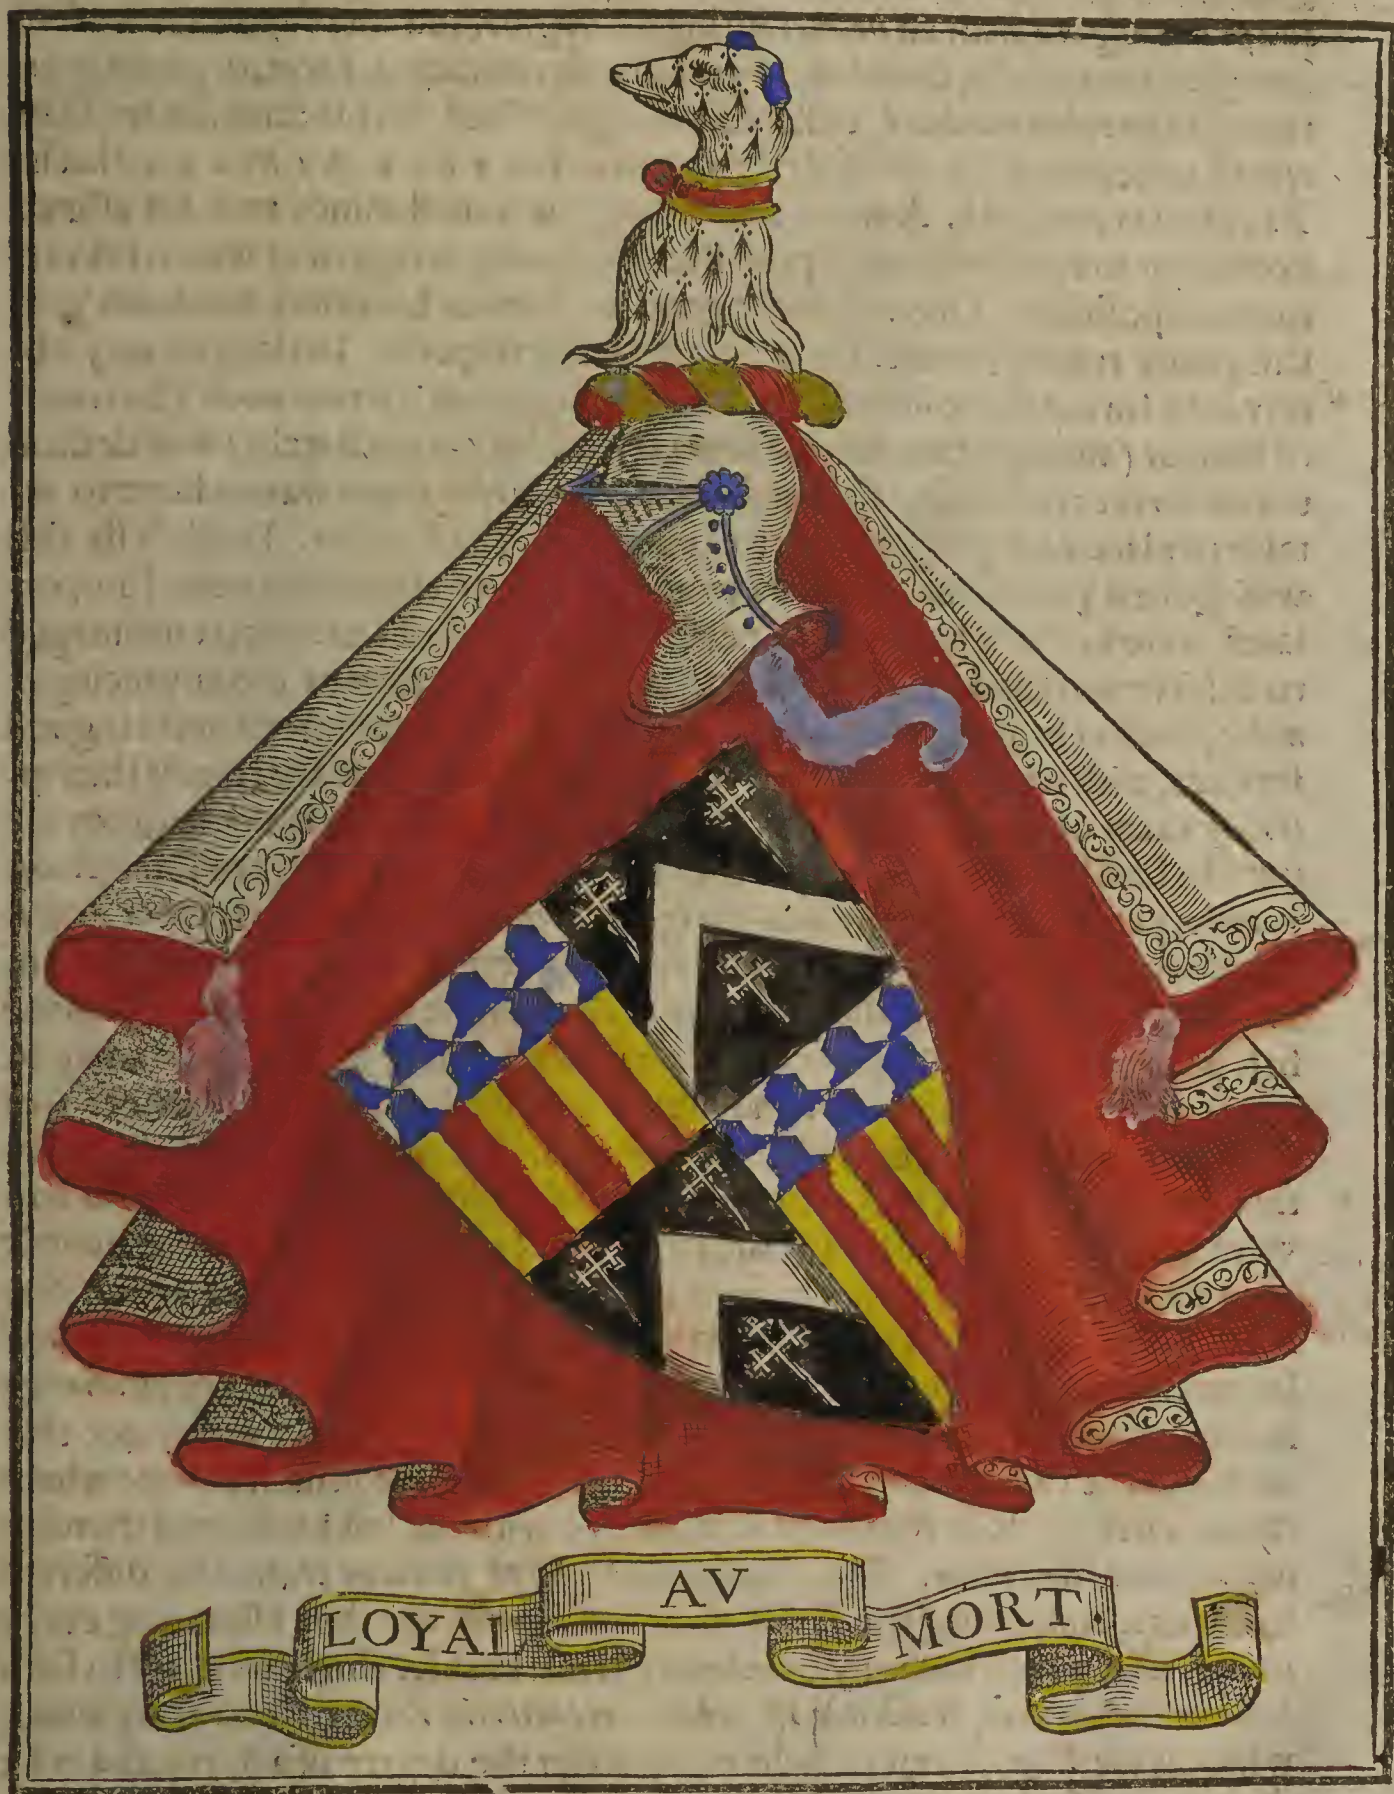 LOYAL AV MORT.